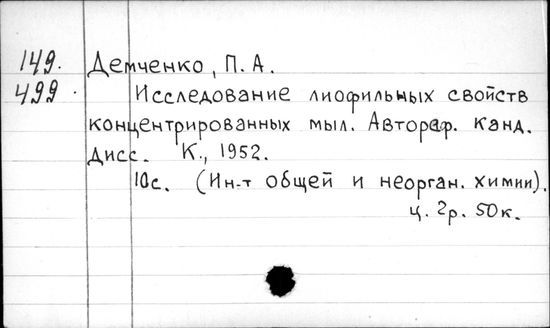 149. Демченко, П. А.
499. Исследование лиофильных свойств
концентрированных мыл. Автореф. канд.
дисс. К., 1952.
10с. (Ин-т общей и неорган. химии).
ц. 2р. 50к.